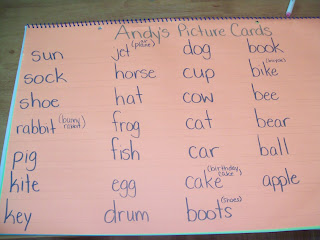 Andy's Picture Cards
sun
sock
shoe
rabbit (bunny rabbit)
pig
kite
key
jet (air plane)
horse
hat
frog
fish
egg
drum
dog
cup
cow
cat
car
cake (birthday cake)
boots (shoes)
book
bike
bee
bear
ball
apple